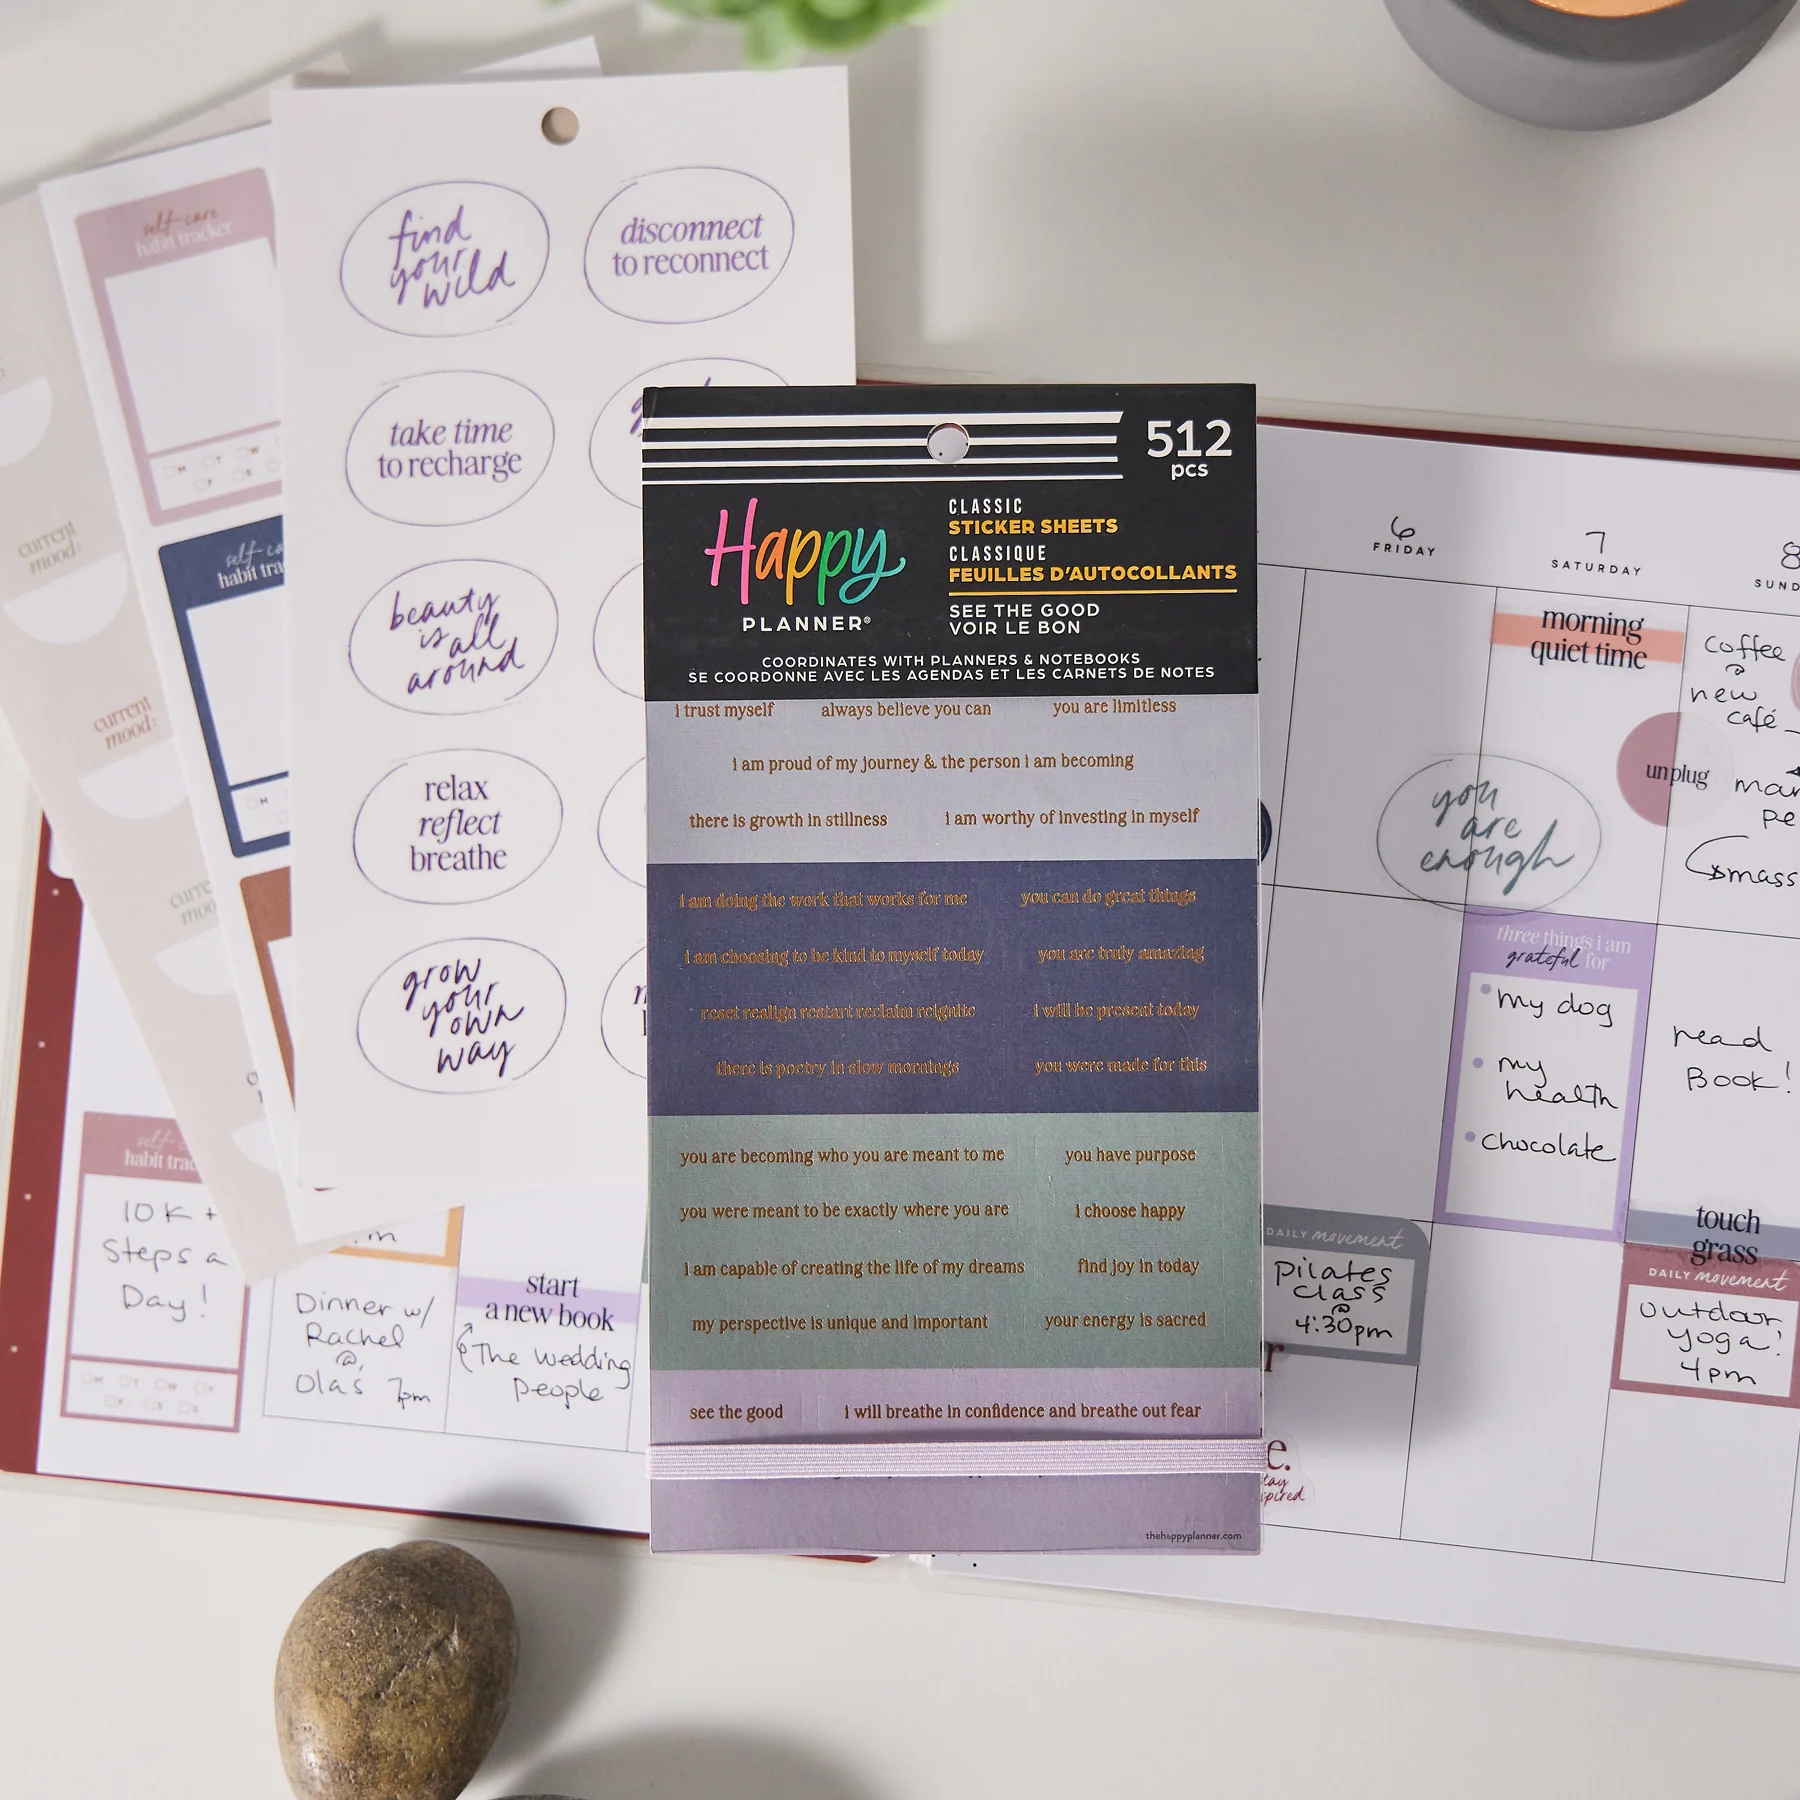 self-care
habit tracker
M T W
F S
current
mood:
self-ca
habit tra
current
mood:
M
find
your
wild
disconnect
to reconnect
take time
to recharge
beauty
is all
around
relax
reflect
breathe
grow
your
own
way
512
pcs
Happy
PLANNER®
CLASSIC
STICKER SHEETS
CLASSIQUE
FEUILLES D'AUTOCOLLANTS
SEE THE GOOD
VOIR LE BON
COORDINATES WITH PLANNERS & NOTEBOOKS
SE COORDONNE AVEC LES AGENDAS ET LES CARNETS DE NOTES
i trust myself always believe you can you are limitless
i am proud of my journey & the person i am becoming
there is growth in stillness i am worthy of investing in myself
i am doing the work that works for me you can do great things
i am choosing to be kind to myself today you are truly amazing
reset realign restart reclaim reignite i will be present today
there is poetry in slow mornings you were made for this
you are becoming who you are meant to me you have purpose
you were meant to be exactly where you are i choose happy
i am capable of creating the life of my dreams find joy in today
my perspective is unique and important your energy is sacred
see the good i will breathe in confidence and breathe out fear
thehappyplanner.com
habit trac
10K +
Steps a
Day!
M T W T
F S S
Dinner w/
Rachel
@
Ola's 7pm
start
a new book
The Wedding
People
6
FRIDAY
7
SATURDAY
8
SUND
morning
quiet time
coffee
@
new
café
unplug
mass
you
are
enough
three things i am
grateful for
my dog
my
health
chocolate
read
Book!
DAILY movement
Pilates
class
@
4:30pm
touch
grass
DAILY movement
outdoor
yoga!
4pm
e.